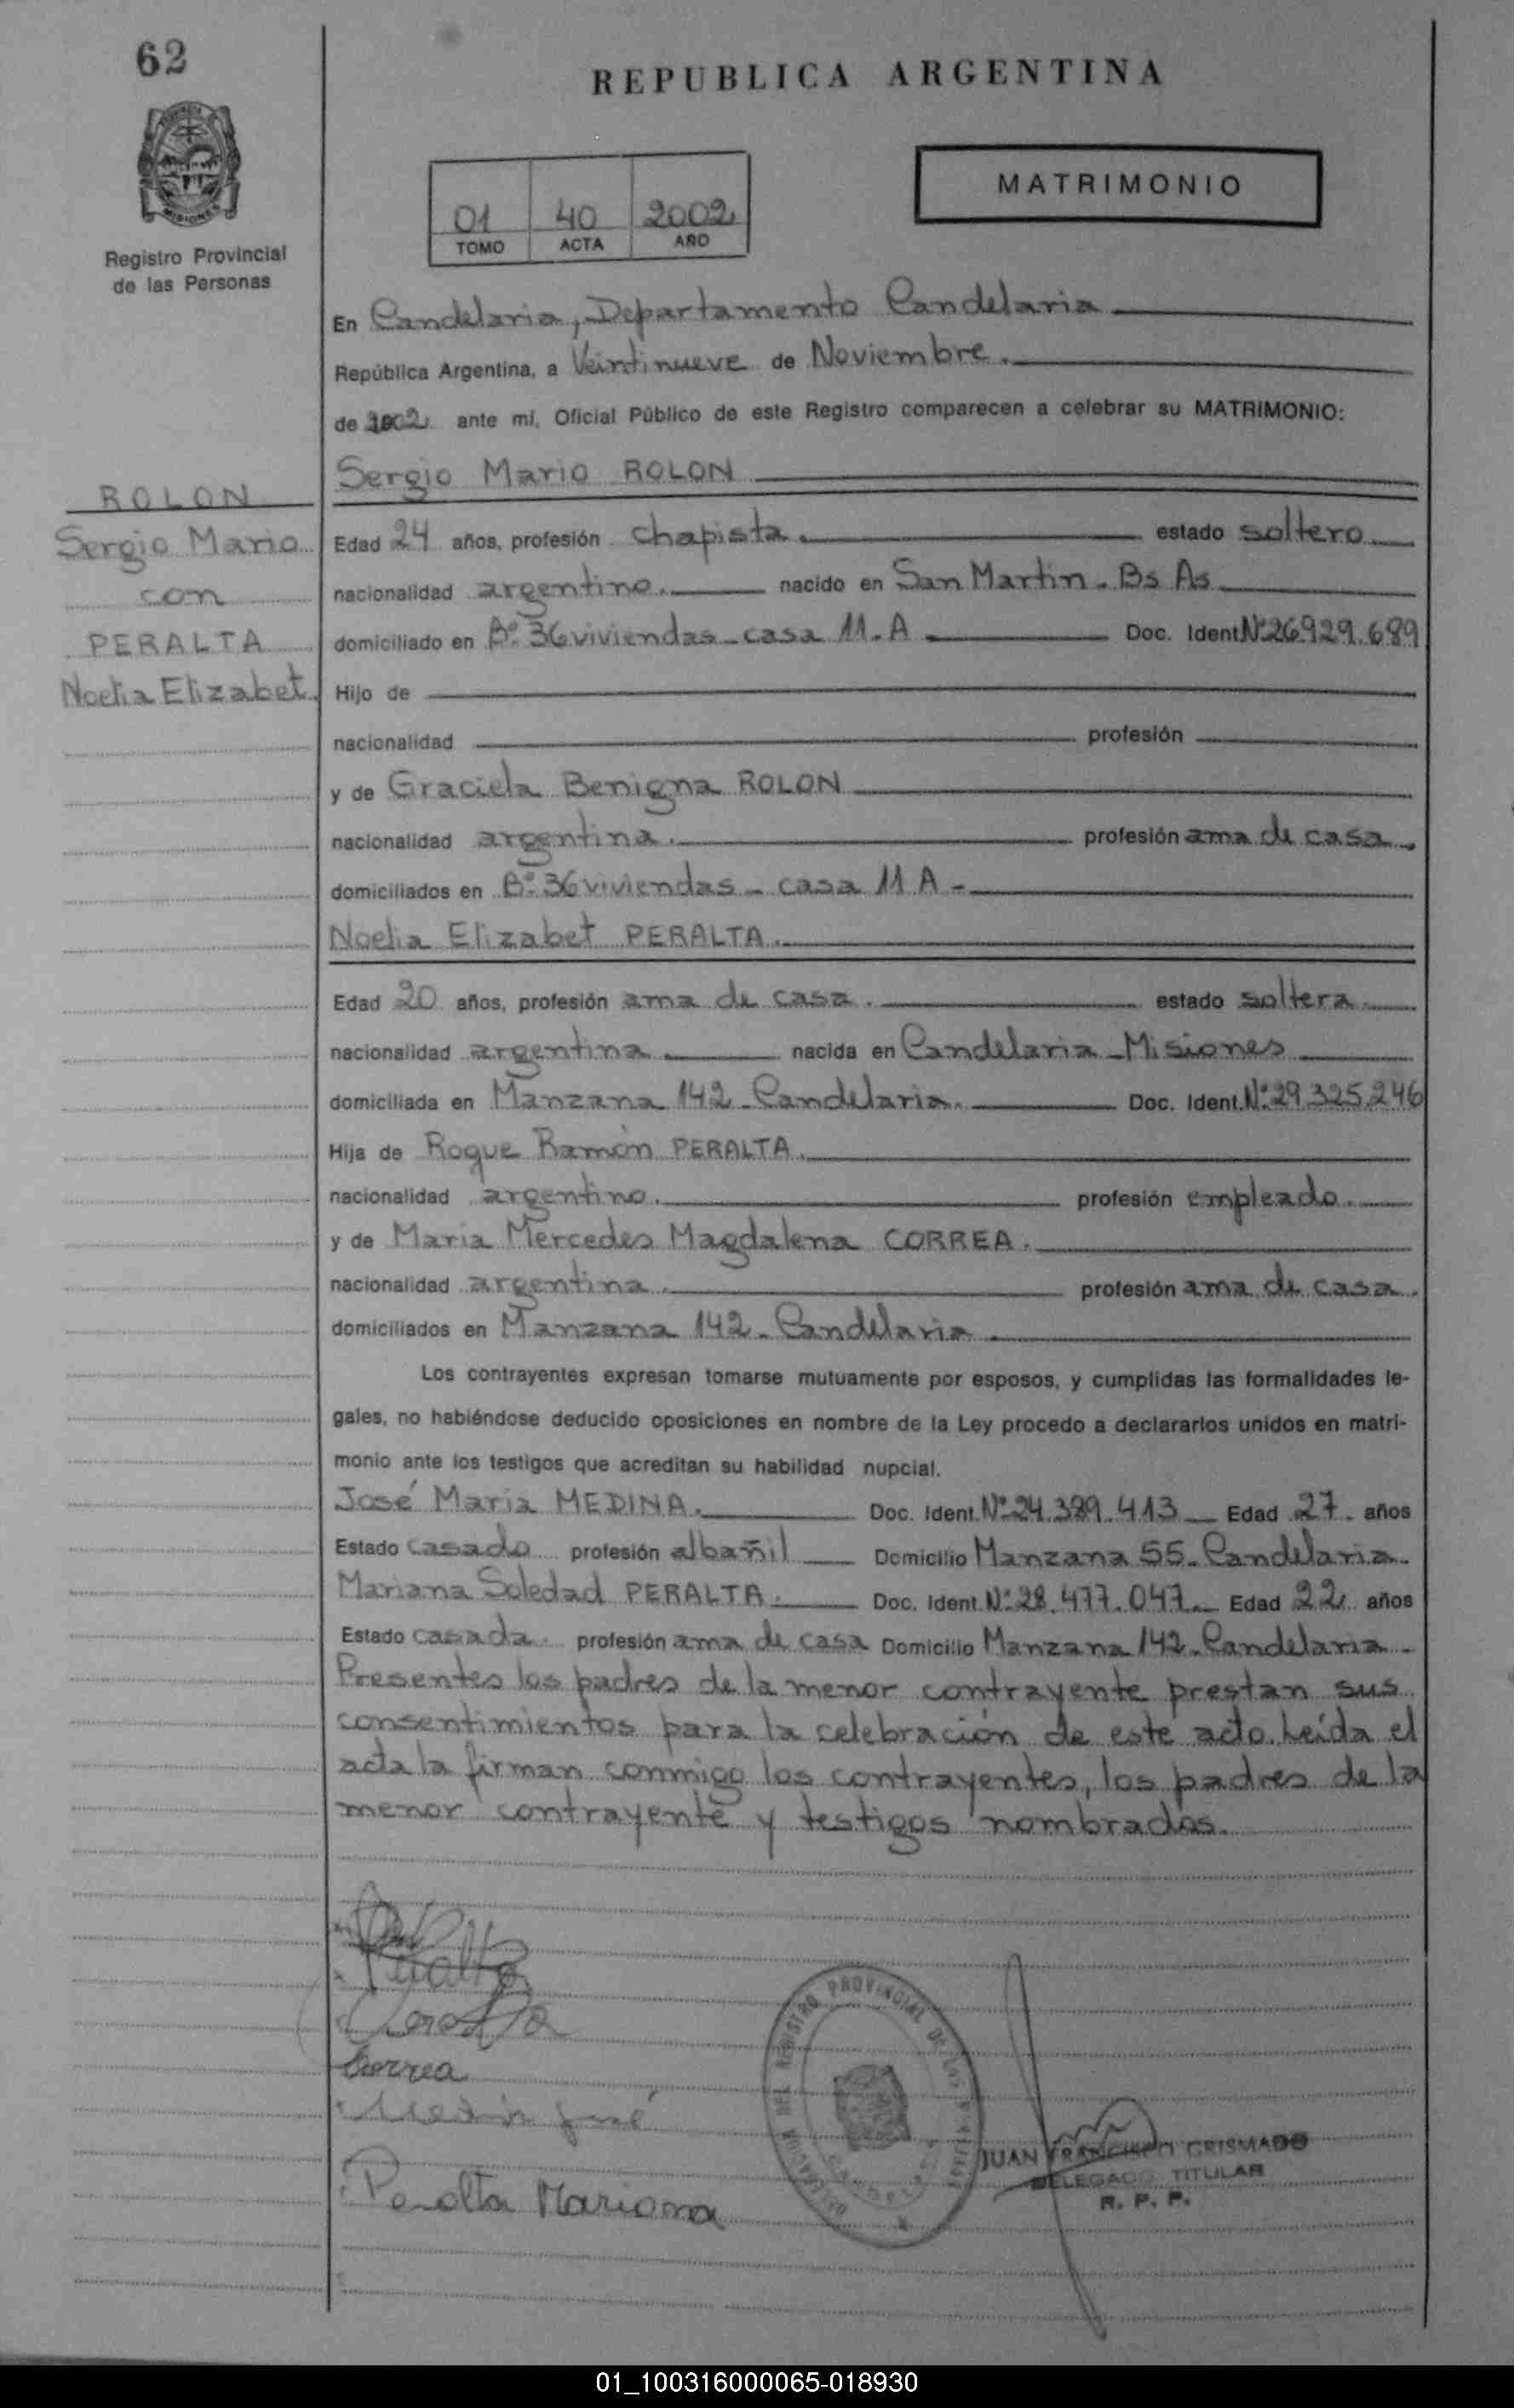 62
REPUBLICA ARGENTINA
MISIONES
Registro Provincial
de las Personas
01 40 2002
TOMO ACTA AÑO
MATRIMONIO
En Candelaria, Departamento Candelaria
República Argentina, a Veintinueve de Noviembre.
de 2002 ante mí, Oficial Público de este Registro comparecen a celebrar su MATRIMONIO:
ROLON
Sergio Mario
con
PERALTA
Noelia Elizabet.
Sergio Mario ROLON
Edad 24 años, profesión chapista. estado soltero
nacionalidad argentino. nacido en San Martin - Bs As
domiciliado en Bº 36 viviendas - casa 11. A Doc. Ident. Nº 26.929.689
Hijo de
nacionalidad profesión
y de Graciela Benigna ROLON
nacionalidad argentina. profesión ama de casa.
domiciliados en Bº 36 viviendas - casa 11 A -
Noelia Elizabet PERALTA.
Edad 20 años, profesión ama de casa. estado soltera.
nacionalidad argentina nacida en Candelaria - Misiones
domiciliada en Manzana 142 - Candelaria. Doc. Ident. Nº 29.325.246
Hija de Roque Ramón PERALTA.
nacionalidad argentino. profesión empleado.
y de Maria Mercedes Magdalena CORREA.
nacionalidad argentina. profesión ama de casa.
domiciliados en Manzana 142 - Candelaria
Los contrayentes expresan tomarse mutuamente por esposos, y cumplidas las formalidades le-
gales, no habiéndose deducido oposiciones en nombre de la Ley procedo a declararlos unidos en matri-
monio ante los testigos que acreditan su habilidad nupcial.
José Maria MEDINA. Doc. Ident. Nº 24.389.413 Edad 27. años
Estado casado profesión albañil Domicilio Manzana 55 - Candelaria.
Mariana Soledad PERALTA. Doc. Ident. Nº 28.477.047. Edad 22 años
Estado casada. profesión ama de casa Domicilio Manzana 142 - Candelaria.
Presentes los padres de la menor contrayente prestan sus
consentimientos para la celebración de este acto. Leída el
acta la firman conmigo los contrayentes, los padres de la
menor contrayente y testigos nombrados.
Peralta
Correa
José
Peralta Mariana
DELEGACION DEL REGISTRO PROVINCIAL DE LAS PERSONAS
JUAN FRANCISCO GRISMADO
DELEGADO TITULAR
R. P. P.
01_100316000065-018930